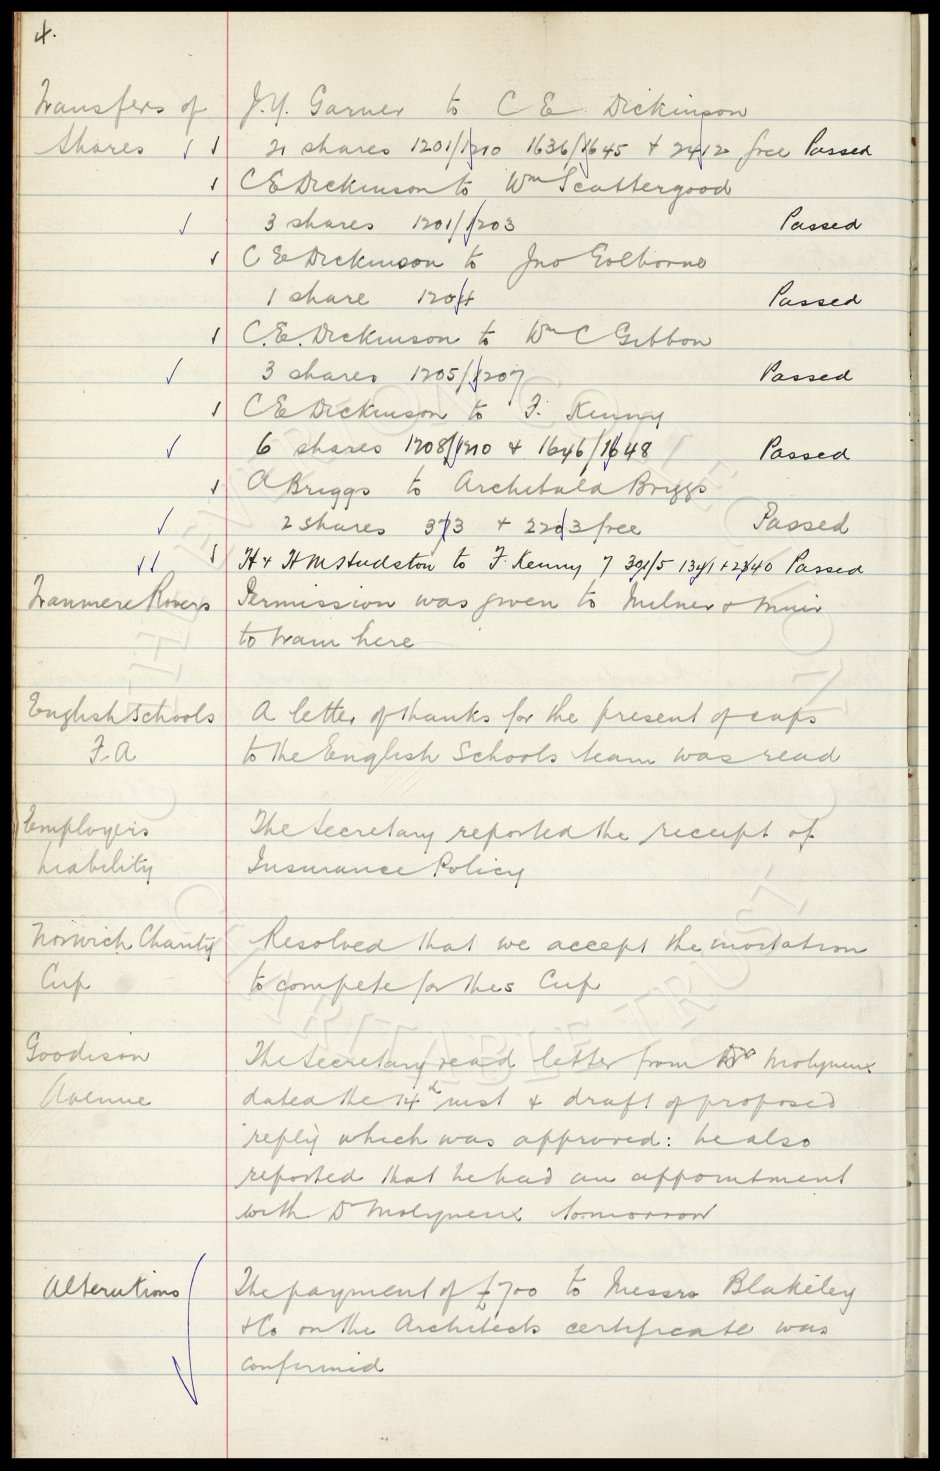 4.
Transfers of J.Y. Garner to C E Dickinson
Shares 21 shares 1201/1210 1636/1645 + 2412 free Passed
C E Dickinson to Wm Scattergood
3 shares 1201/1203 Passed
C E Dickinson to Jno Golborne
1 share 1204 Passed
C.E. Dickinson to Wm C Gibbon
3 shares 1205/1207 Passed
C E Dickinson to F. Kenny
6 shares 1208/1210 + 1646/1648 Passed
A Briggs to Archibald Briggs
2 shares 373 + 2203 free Passed
H + H M Hudston to F. Kenny 7 391/5 1341 + 2340 Passed
Tranmere Rovers Permission was given to Milner & Muir
to train here
English Schools A letter of thanks for the present of caps
F.A to the English Schools team was read
Employers The Secretary reported the receipt of
Liability Insurance Policy
Norwich Charity Resolved that we accept the invitation
Cup to compete for this Cup
Goodison The Secretary read letter from Molyneux
Avenue dated the 14th inst & draft of proposed
reply which was approved: he also
reported that he had an appointment
with Dr Molyneux tomorrow
Alterations The payment of £700 to Messrs Blakeley
& Co on the Architects certificate was
confirmed
THE EVERTON COLLECTION CHARITABLE TRUST